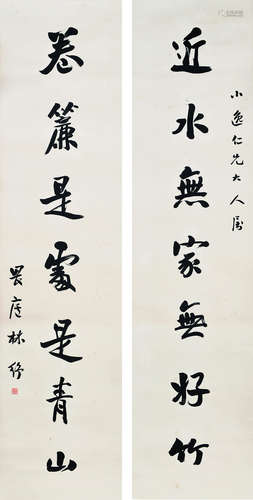 小逸仁兄大人屬
近水無家無好竹
卷簾是處是青山
畏廬林紓